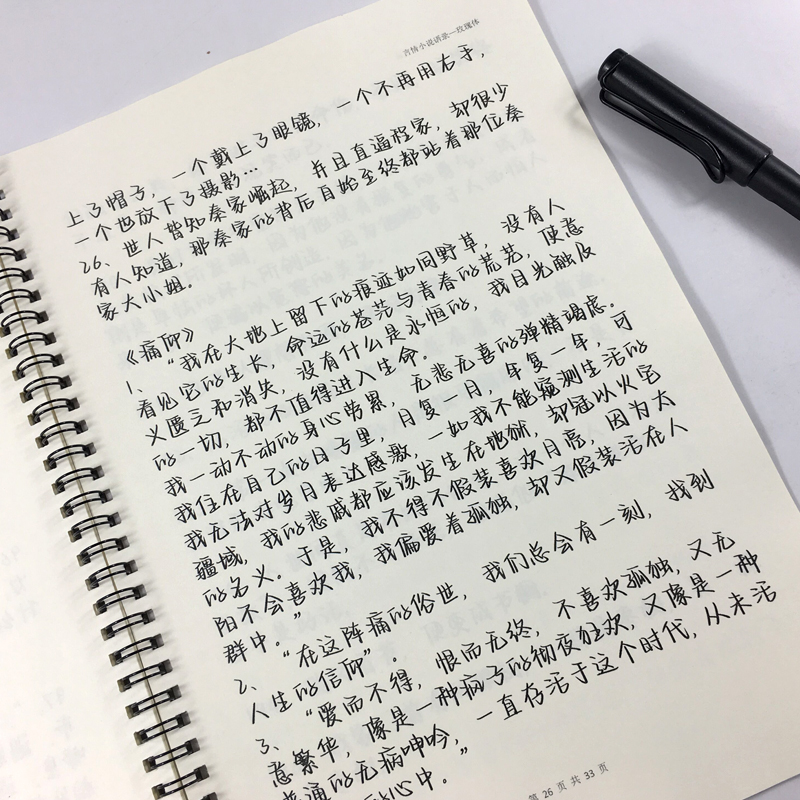 言情小说语录—玫瑰体
一个戴上了眼镜，一个不再用右手，
上了帽子，
一个也放下了摄影…
26、世人皆知秦家崛起，并且直逼程家，却很少
有人知道，那秦家的背后自始至终都站着那位秦
家大小姐。
《痛仰》
1、“我在大地上留下的痕迹如同野草，没有人
看见它的生长，命运的苍茫与青春的荒芜，使意
义匮乏和消失，没有什么是永恒的，我目光触及
的一切，都不值得进入生命。
我一动不动的身心劳累，无悲无喜的弹精竭虑。
我住在自己的日子里，月复一月，年复一年，可
我无法对岁月表达感激，一如我不能窥测生活的
疆域，我的悲戚都应该发生在地狱，却冠以火宅
的名义。于是，我不得不假装喜欢月亮，因为太
阳不会喜欢我，我偏爱着孤独，却又假装活在人
群中。”
2、“在这阵痛的俗世，我们总会有一刻，找到
人生的信仰”。
3、“爱而不得，恨而无终，不喜欢孤独，又无
意繁华，像是一种病子的彻夜狂欢，又像是一种
普通的无病呻吟，一直存活于这个时代，从未活
的心中。”
第 26 页 共 33 页